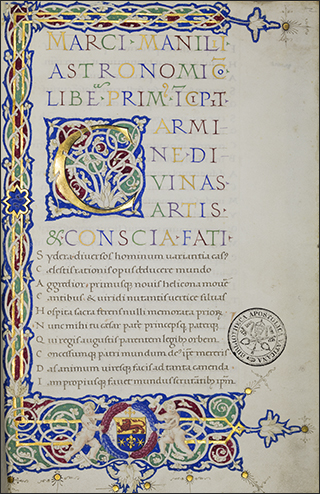 MARCI·MANILII
ASTRONOMICŌ
LIBE PRIM ICIPT·
C
ARMI
NE·DI
VINAS·
ARTIS·
&CONSCIA·FATI·
Sydera diuersos hominum uariantia cas
Caelestis rationis opus deducere mundo
Aggredior primusq; nouis helicona moue
Cantibus & uiridi nutantis uertice siluas
Hospita sacra ferens nulli memorata prior
Nunc mihi tu caesar patrie princepsq; paterq;
Qui regis augustis parentem legibus orbem
Concessumq; patri mundum ds ipse mereris
Das animum uiresq; facis ad tanta canenda
Iam propiusq; fauet mundus scrutantib ipsm
BIBLIOTHECA APOSTOLICA VATICANA